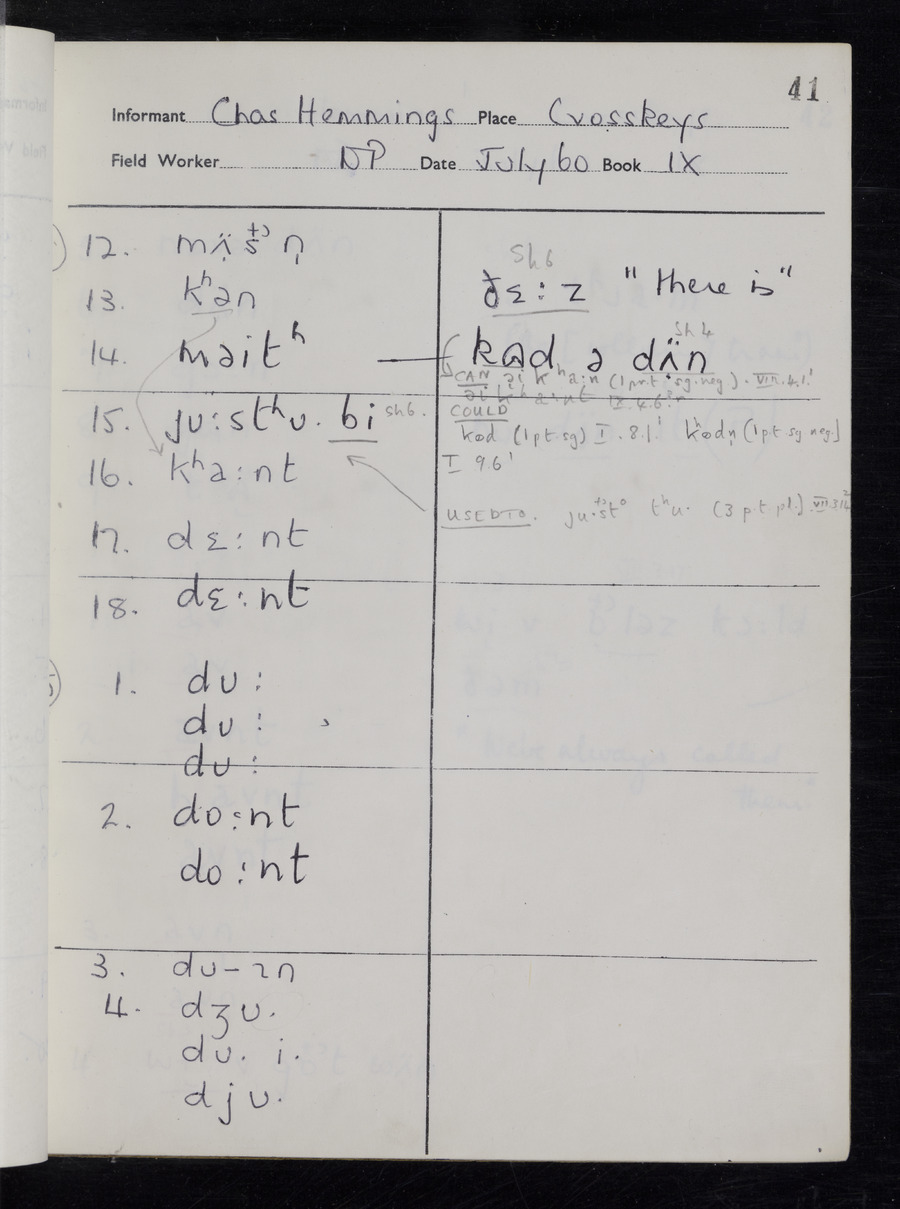 41
Informant Chas Hemmings Place Crosskeys
Field Worker DP Date July 60 Book IX
12. mʌ̈s n̩
13. kʰən
14. məitʰ
15. ju:stʰu. bi sh6.
16. kʰa:nt
17. dɛ:nt
18. dɛ:nt
1. du:
du:
du:
2. do:nt
do:nt
3. du-ɪn
4. dʒu.
du. i.
dju.
Sh6
ðɛ:z "there is"
Sh 4
kɷd ə dʌ̈n
CAN əi kʰa:n (1 pr.t. sg. neg). VIII.4.1.
əi kʰa:nt IX.4.6.
COULD
kɷd (1 pt sg) I. 8.1 kʰɷdn̩ (1 pt sg neg)
I 9.6
USED TO. ju.st tʰu. (3 p.t. pl.) VII.3.14